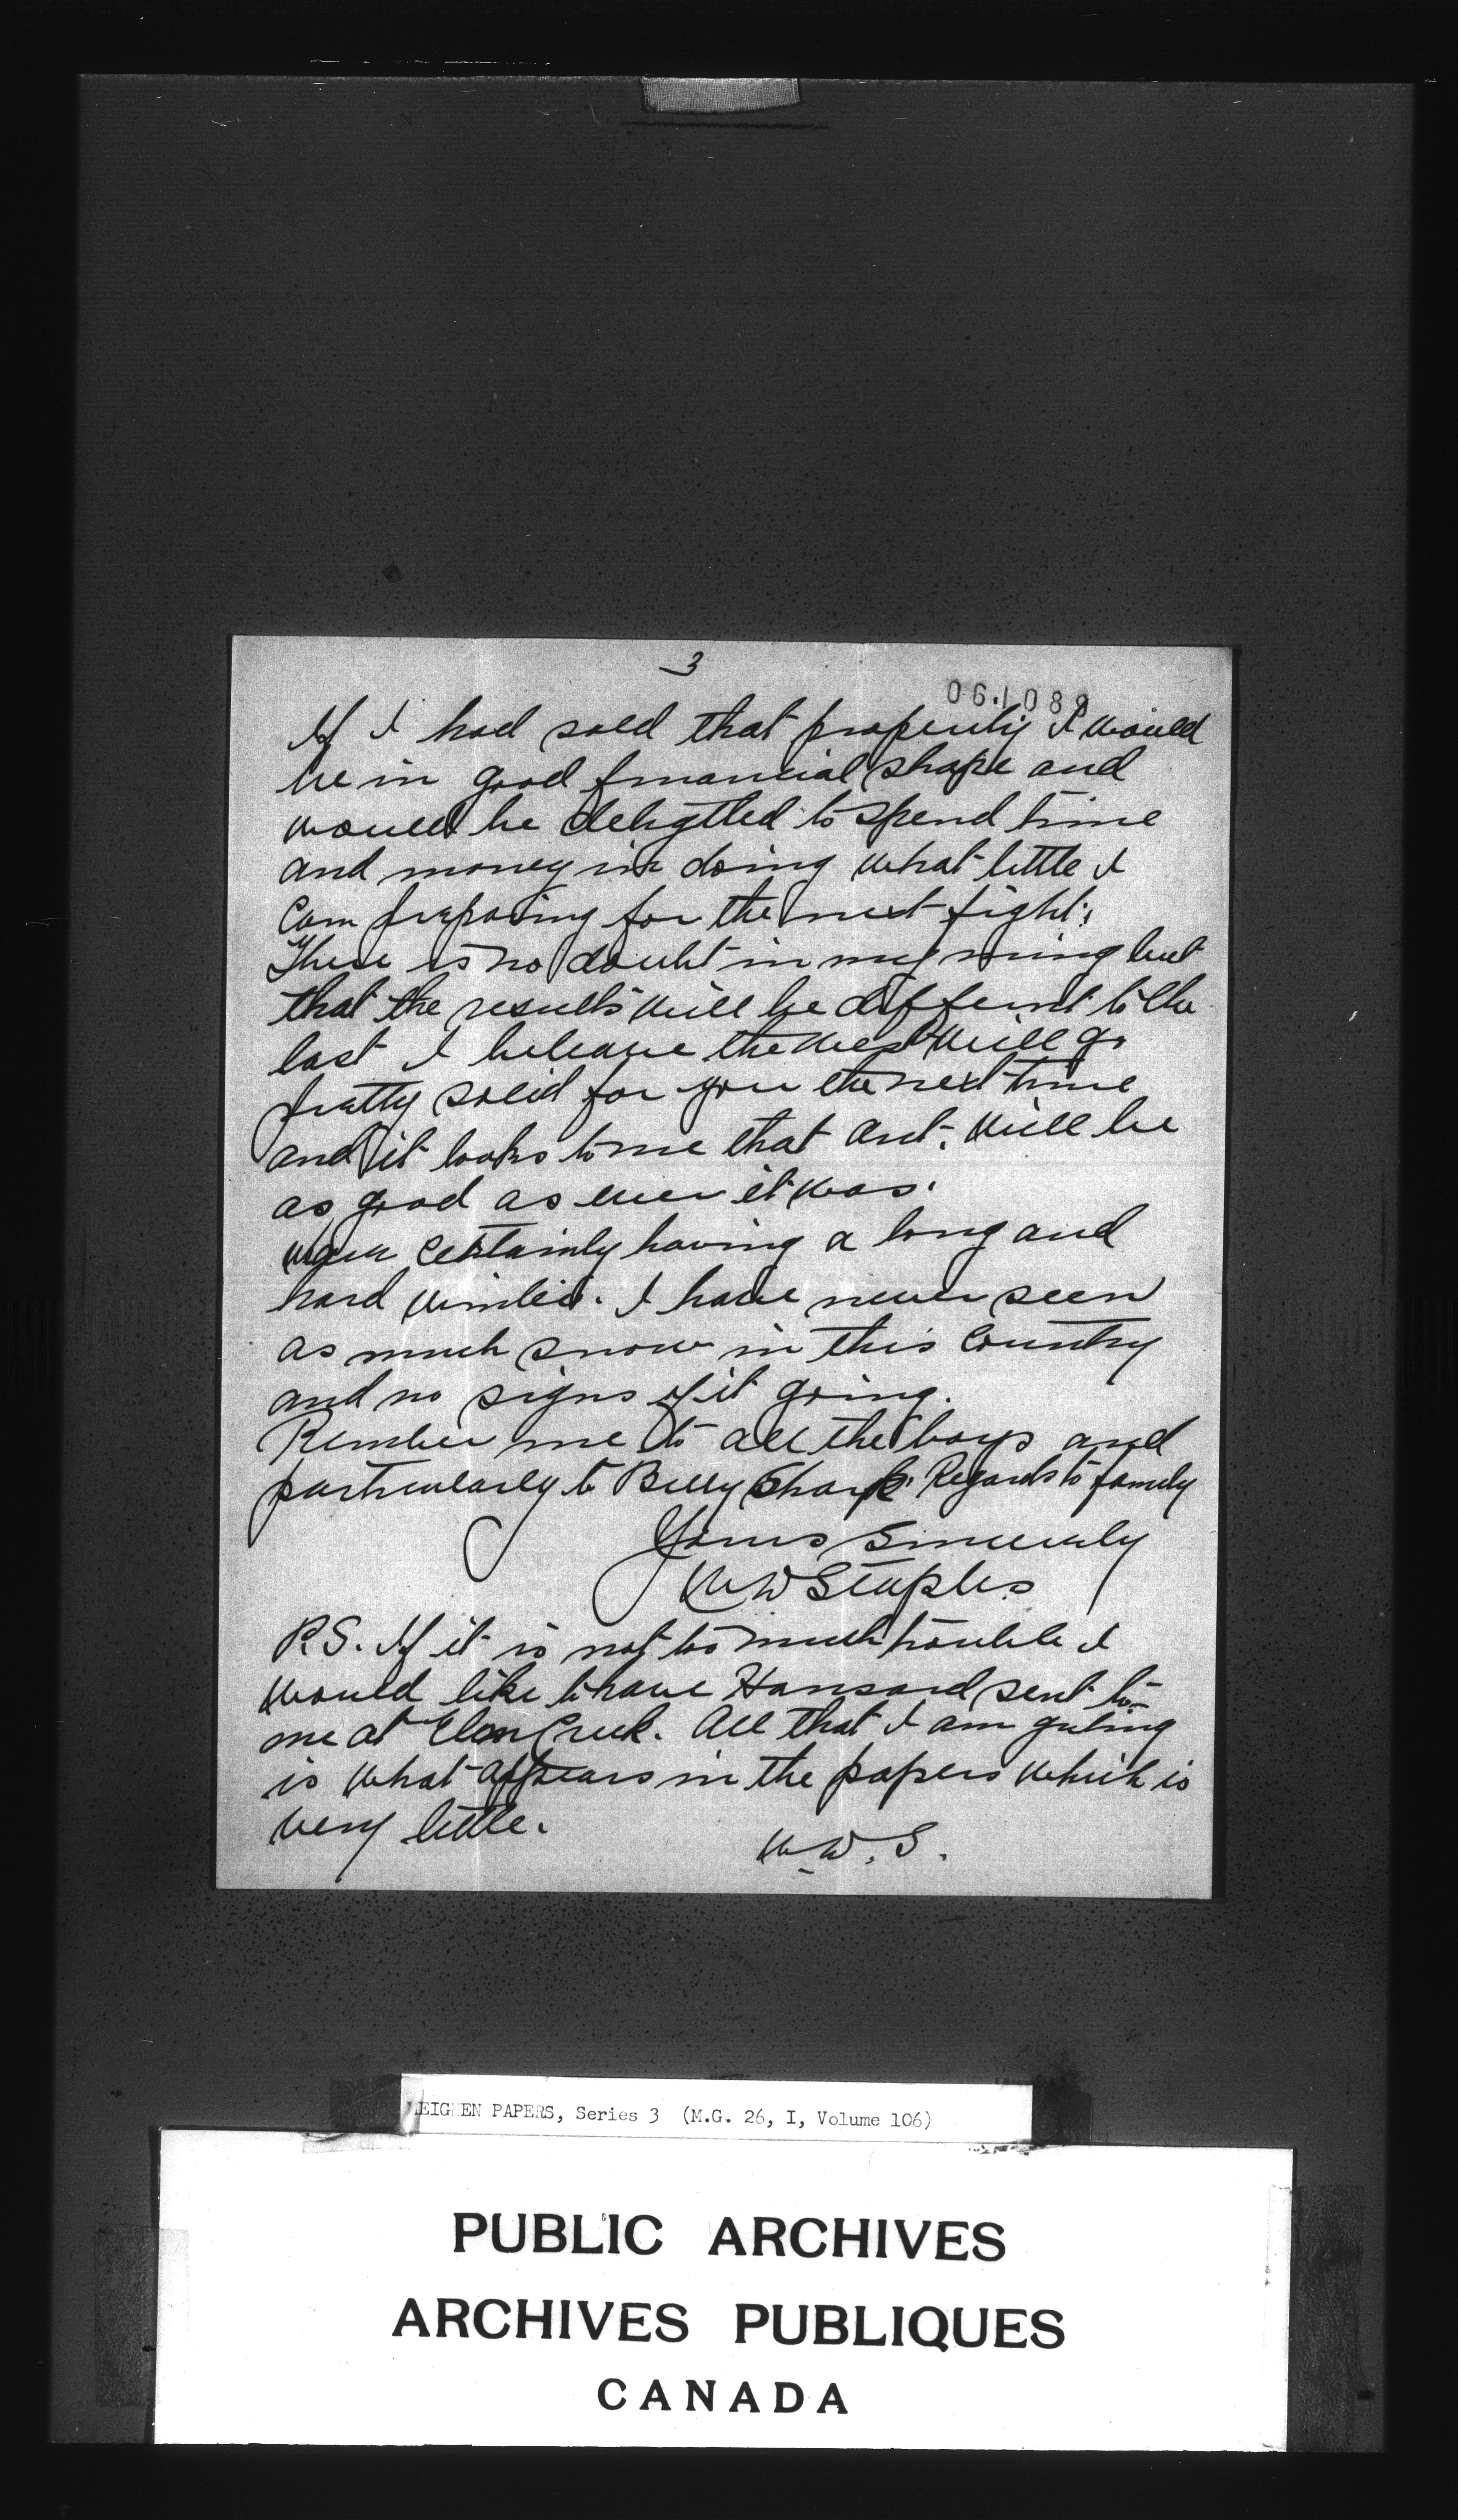 3
061089
If I had sold that property I would
be in good financial shape and
would be delightled to spend time
and money in doing what little I
can preparing for the next fight.
There is no doubt in my ming but
that the results will be different to the
last I beleave the west will go
pretty solid for you the next time
and it looks to me that Ont. will be
as good as ever it was.
We are certainly having a long and
hard winter. I have never seen
as much snow in this Country
and no signs of it going.
Rember me to all the boys and
particularly to Billy Sharpe. Regards to family
Yours Sincerely
W W Staples
P.S. If it is not too much trouble I
would like to have Hansard sent to
me at Elm Creek. All that I am getting
is what appears in the papers which is
very little.
W.W.S.
MEIGHEN PAPERS, Series 3 (M.G. 26, I, Volume 106)
PUBLIC ARCHIVES
ARCHIVES PUBLIQUES
CANADA